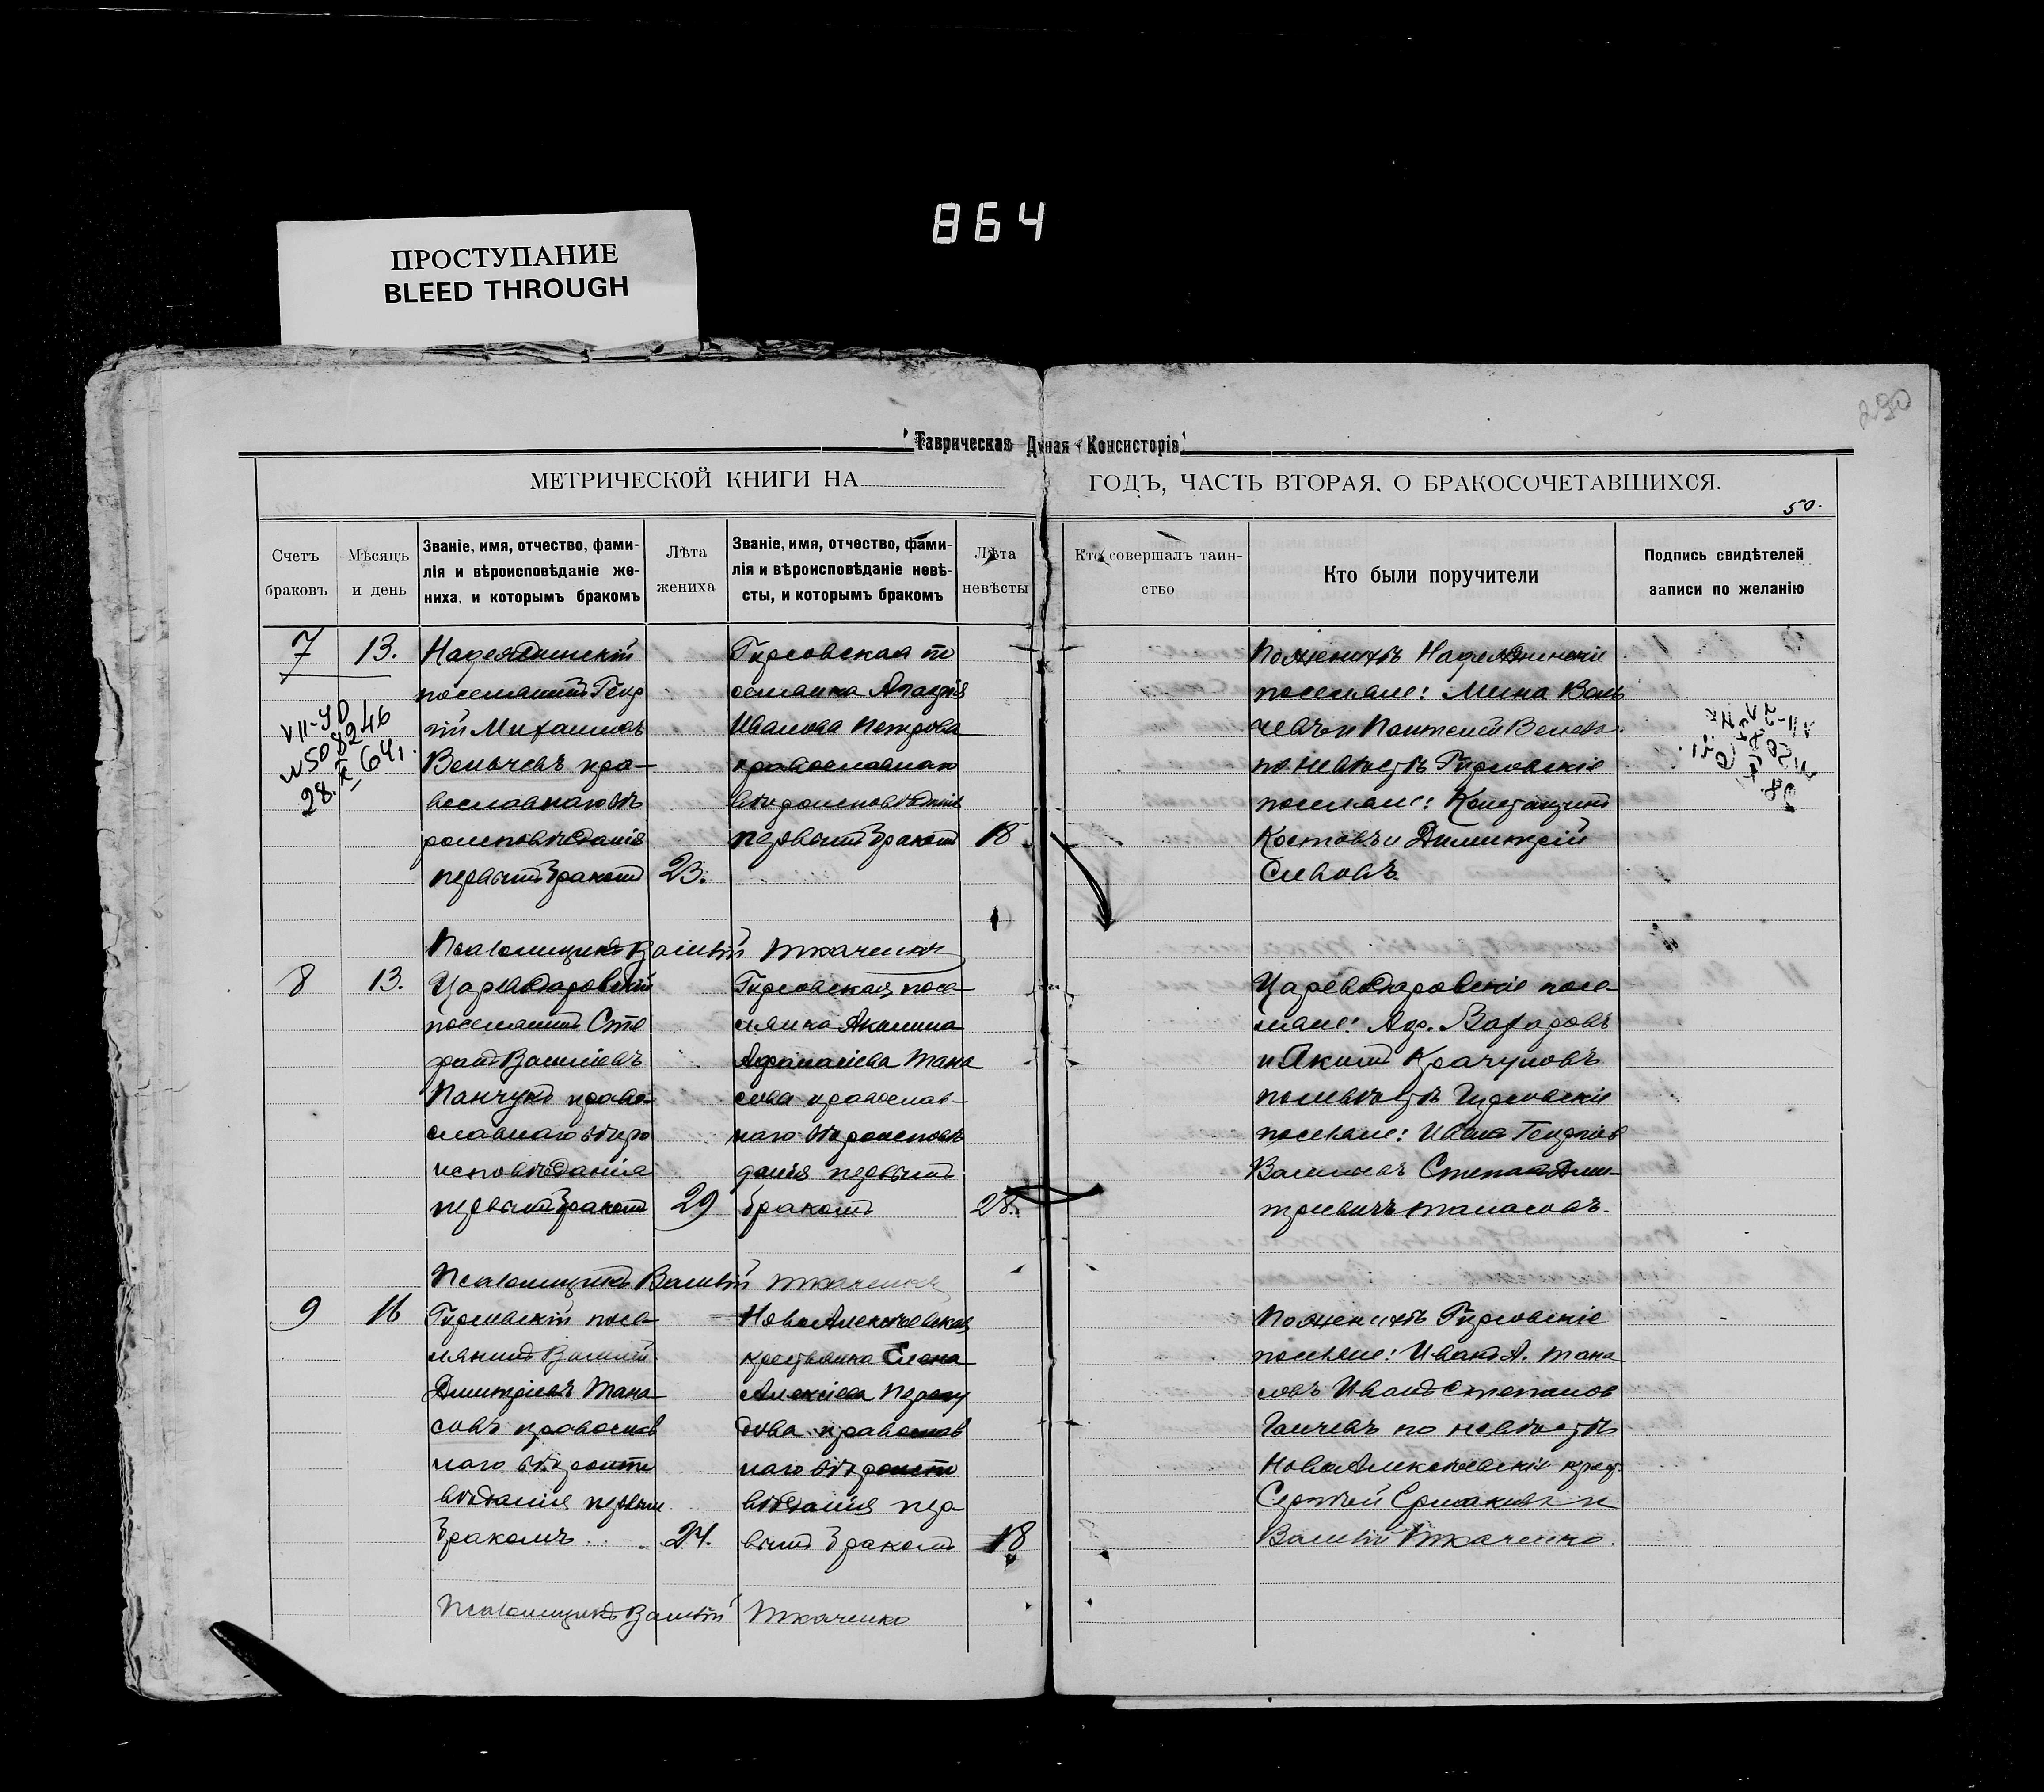 864
ПРОСТУПАНИЕ
BLEED THROUGH
290
Таврическая Д ная Консисторія
МЕТРИЧЕСКОЙ КНИГИ НА ГОДЪ, ЧАСТЬ ВТОРАЯ, О БРАКОСОЧЕТАВШИХСЯ.
50.
Счетъ браковъ
Мѣсяцъ и день
Званіе, имя, отчество, фами-
лія и вѣроисповѣданіе же-
ниха, и которымъ бракомъ
Лѣта жениха
Званіе, имя, отчество, фами-
лія и вѣроисповѣданіе невѣ-
сты, и которымъ бракомъ
Лѣта невѣсты
Кто совершалъ таин-
ство
Кто были поручители
Подпись свидѣтелей
записи по желанію
7
13.
Надеждинскій
поселянинъ Геор
гій Михаиловъ
Вельчевъ пра-
вославнаго вѣ
роисповѣданія
первымъ бракомъ
23.
Гирсовская по
селянка
Иванова Петрова
православнаго
вѣроисповѣданія
первымъ бракомъ
18
По женихѣ Надеждинскіе
поселяне: Мина Вель
чевъ и
по невѣстѣ Гирсовскіе
поселяне: Константинъ
Костовъ и Димитрій
Сивовъ.
VII-ЯР
№ 508246
28.X 64г.
Псаломщикъ Василій Ткаченко
8
13.
Цареводаровскій
поселянинъ Сте
фанъ Василіевъ
Панчукъ право-
славнаго вѣро
исповѣданія
первымъ бракомъ
29
Гирсовская посе-
лянка Акилина
Афанасіева Тана
сова православ-
наго вѣроисповѣ
данія первымъ
бракомъ
28.
Цареводаровскіе посе-
ляне: Захаровъ
и Якимъ Крачуновъ
по невѣстѣ Гирсовскіе
поселяне: Иванъ Георгіев
Василіевъ Степанъ Дми-
тріевичъ Танасовъ.
Псаломщикъ Василій Ткаченко
9
16
Гирсовскій посе-
лянинъ Василій
Димитріевъ Тана-
совъ православ
наго вѣроиспо
вѣданія первым
бракомъ
24.
Ново Алексѣевская
крестьянка Елена
Алексіева
православ
наго вѣроиспо
вѣданія пер
вымъ бракомъ
18
По женихѣ Гирсовскіе
поселяне: Иванъ А. Тана
совъ Иванъ Степанов
Ганчевъ по невѣстѣ
Ново Алексѣевскіе крест.
Сергѣй Ермаковъ и
Василій Ткаченко.
Псаломщикъ Василій Ткаченко